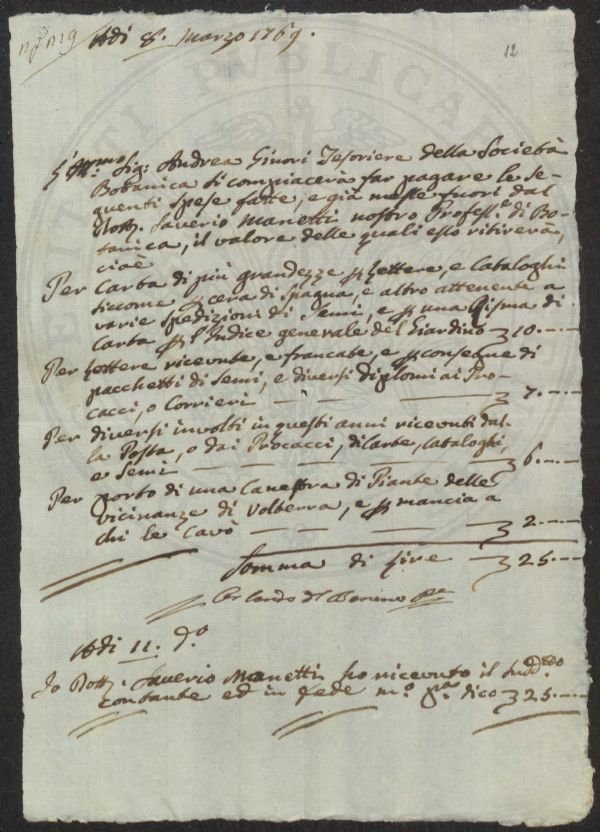 n° 19
Adi 8. Marzo 1769.
12
Ill.mo Sig: Andrea Ginori Tesoriere della Società
Botanica si compiacerà far pagare le se-
guenti spese fatte, e già messe fuori dal
Dott. Saverio Manetti nostro Profess.e di Bo-
tanica, il valore delle quali esso ritirerà,
cioè
Per Carta di più grandezze p Lettere, e Cataloghi
siccome p cera di Spagna, e altro attenente a
varie spedizioni di Semi, e p una Risma di
Carta p l'Indice generale del Giardino 10.--
Per Lettere ricevute, e francate, e p consegne di
pacchetti di Semi, e diversi diplomi ai Pro-
cacci, o Corrieri — — — 7.--
Per diversi involti in questi anni ricevuti dal-
la Posta, o dai Procacci, di Carte, Cataloghi,
e Semi — — — — — 6.--
Per porto di una Canestra di Piante delle
vicinanze di Volterra, e p mancia a
chi le cavò — — — 2.--
Somma di Lire 25.--
Adi 11. d.o
Io Dott. Saverio Manetti ho ricevuto il sudd.o
contante ed in fede m.o p.a dico 25.--